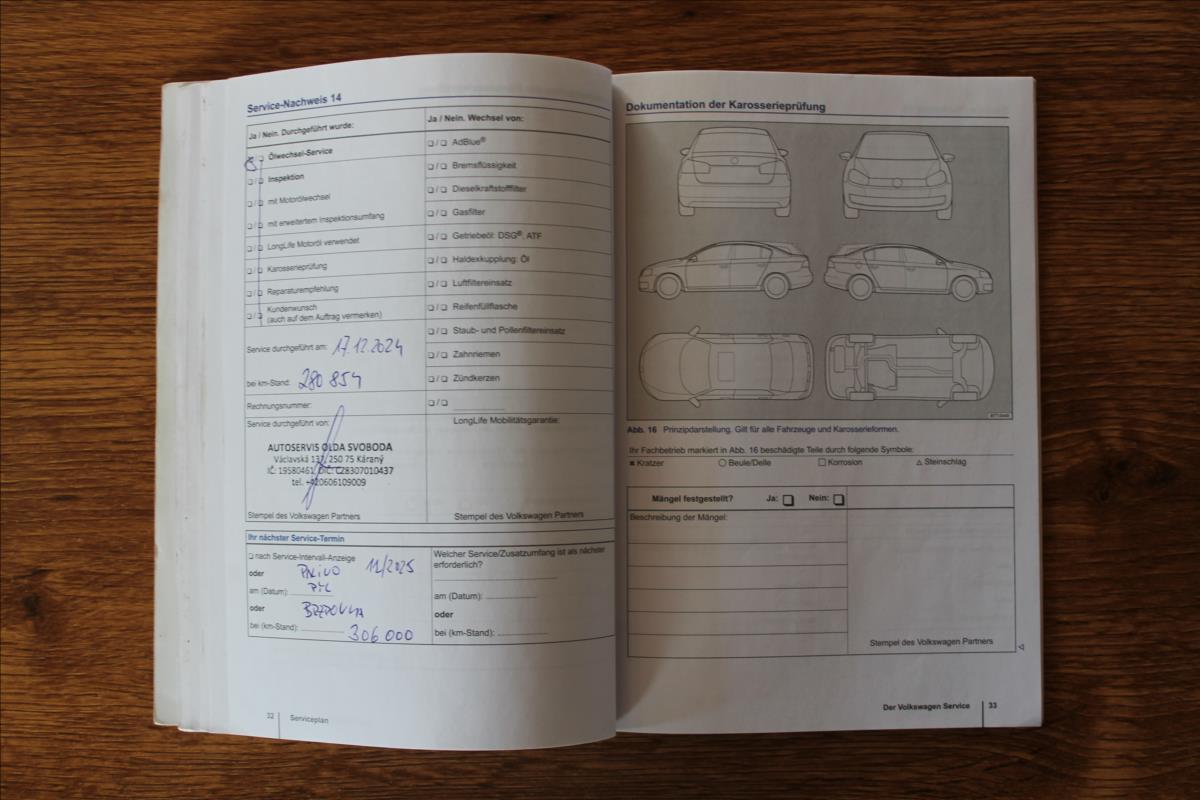 Service-Nachweis 14
Ja / Nein. Durchgeführt wurde:
Ölwechsel-Service
Inspektion
mit Motorölwechsel
mit erweitertem Inspektionsumfang
LongLife Motoröl verwendet
Karosserieprüfung
Reparaturempfehlung
Kundenwunsch
(auch auf dem Auftrag vermerken)
Service durchgeführt am: 17.12.2024
bei km-Stand: 280 854
Rechnungsnummer:
Service durchgeführt von:
AUTOSERVIS OLDA SVOBODA
Václavská 137, 250 75 Káraný
IČ: 19580461, DIČ: CZ8307010437
tel. +420606109009
Stempel des Volkswagen Partners
Ja / Nein. Wechsel von:
AdBlue®
Bremsflüssigkeit
Dieselkraftstofffilter
Gasfilter
Getriebeöl: DSG®, ATF
Haldexkupplung: Öl
Luftfiltereinsatz
Reifenfüllflasche
Staub- und Pollenfiltereinsatz
Zahnriemen
Zündkerzen
LongLife Mobilitätsgarantie:
Stempel des Volkswagen Partners
Ihr nächster Service-Termin
nach Service-Intervall-Anzeige
oder PALIVO 11/2025
am (Datum): PYL
oder BRZDOVKA
bei (km-Stand): 306 000
Welcher Service/Zusatzumfang ist als nächster
erforderlich?
am (Datum):
oder
bei (km-Stand):
32 Serviceplan
Dokumentation der Karosserieprüfung
Abb. 16 Prinzipdarstellung. Gilt für alle Fahrzeuge und Karosserieformen.
Ihr Fachbetrieb markiert in Abb. 16 beschädigte Teile durch folgende Symbole:
Kratzer Beule/Delle Korrosion Steinschlag
Mängel festgestellt? Ja: Nein:
Beschreibung der Mängel:
Stempel des Volkswagen Partners
Der Volkswagen Service 33